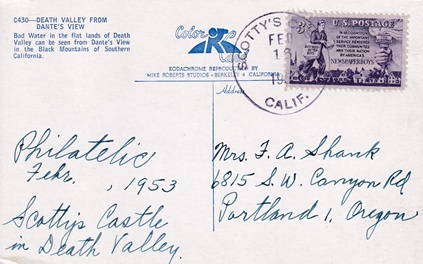 C430—DEATH VALLEY FROM
DANTE'S VIEW
Bad Water in the flat lands of Death
Valley can be seen from Dante's View
in the Black Mountains of Southern
California.
Color
Card
KODACHROME REPRODUCED BY
MIKE ROBERTS STUDIOS - BERKELEY 4 CALIFORNIA
Address
SCOTTY'S
FEB
CALIF.
3¢
U.S. POSTAGE
IN RECOGNITION
OF THE IMPORTANT
SERVICE RENDERED
THEIR COMMUNITIES
AND THEIR NATION
BY AMERICA'S
NEWSPAPERBOYS
Philatelic
Febr. , 1953
Scottys Castle
in Death Valley.
Mrs. F. A. Shank
6815 S.W. Canyon Rd
Portland 1, Oregon